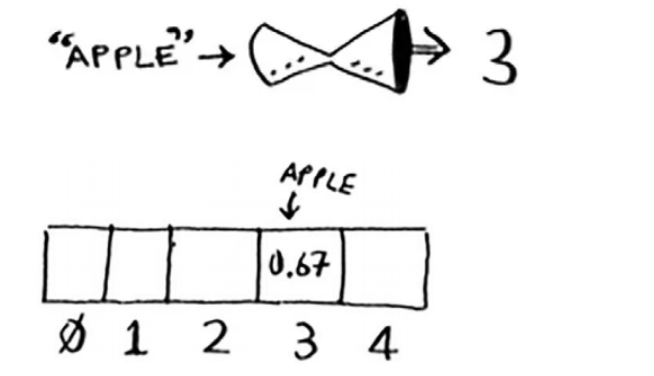 "APPLE" → 3
APPLE
0.67
Ø 1 2 3 4